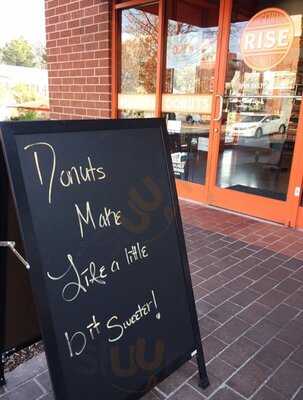 Donuts
Make
Life a little
bit Sweeter!
RISE
DONUTS